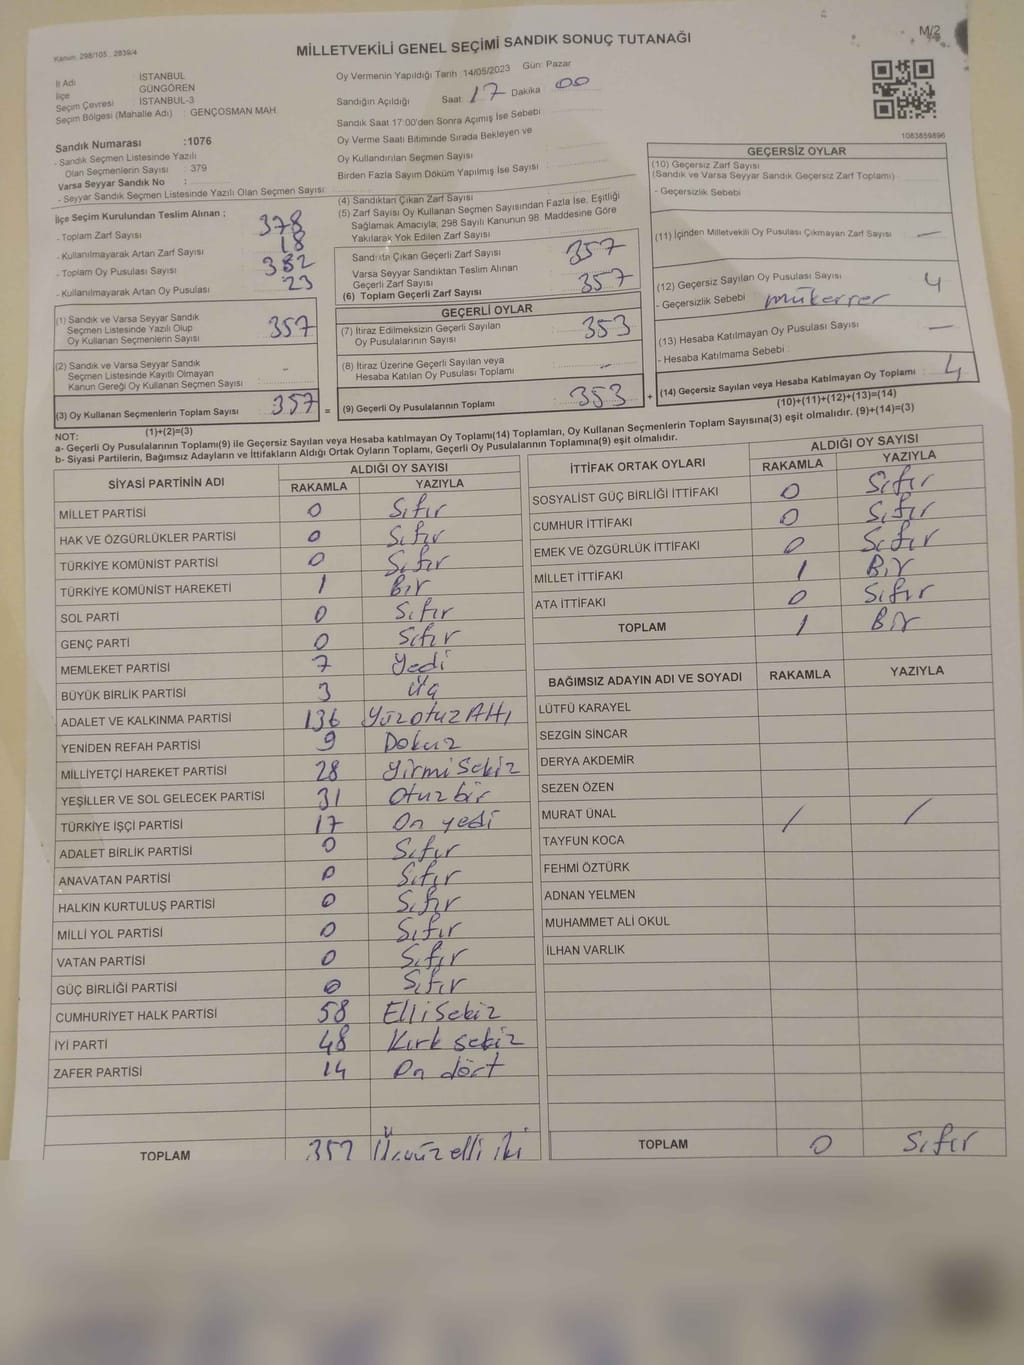 Kanun: 298/105 , 2839/4
M/2
MİLLETVEKİLİ GENEL SEÇİMİ SANDIK SONUÇ TUTANAĞI
İl Adı : İSTANBUL
İlçe : GÜNGÖREN
Seçim Çevresi : İSTANBUL-3
Seçim Bölgesi (Mahalle Adı) : GENÇOSMAN MAH.
Oy Vermenin Yapıldığı Tarih :14/05/2023 Gün: Pazar
Sandığın Açıldığı Saat: 17 Dakika : 00
Sandık Saat 17:00'den Sonra Açımış İse Sebebi
Oy Verme Saati Bitiminde Sırada Bekleyen ve
Oy Kullandırılan Seçmen Sayısı
Birden Fazla Sayım Döküm Yapılmış İse Sayısı
1083859896
Sandık Numarası :1076
- Sandık Seçmen Listesinde Yazılı
Olan Seçmenlerin Sayısı : 379
Varsa Seyyar Sandık No :
- Seyyar Sandık Seçmen Listesinde Yazılı Olan Seçmen Sayısı :
İlçe Seçim Kurulundan Teslim Alınan ;
- Toplam Zarf Sayısı 378
- Kullanılmayarak Artan Zarf Sayısı 18
- Toplam Oy Pusulası Sayısı 382
- Kullanılmayarak Artan Oy Pusulası 23
(1) Sandık ve Varsa Seyyar Sandık
Seçmen Listesinde Yazılı Olup
Oy Kullanan Seçmenlerin Sayısı 357
(2) Sandık ve Varsa Seyyar Sandık
Seçmen Listesinde Kayıtlı Olmayan
Kanun Gereği Oy Kullanan Seçmen Sayısı : -
(3) Oy Kullanan Seçmenlerin Toplam Sayısı 357
(1)+(2)=(3)
(4) Sandıktan Çıkan Zarf Sayısı
(5) Zarf Sayısı Oy Kullanan Seçmen Sayısından Fazla İse, Eşitliği
Sağlamak Amacıyla; 298 Sayılı Kanunun 98. Maddesine Göre
Yakılarak Yok Edilen Zarf Sayısı
Sandıktan Çıkan Geçerli Zarf Sayısı 357
Varsa Seyyar Sandıktan Teslim Alınan
Geçerli Zarf Sayısı
(6) Toplam Geçerli Zarf Sayısı 357
GEÇERLİ OYLAR
(7) İtiraz Edilmeksizin Geçerli Sayılan
Oy Pusulalarının Sayısı 353
(8) İtiraz Üzerine Geçerli Sayılan veya
Hesaba Katılan Oy Pusulası Toplamı -
= (9) Geçerli Oy Pusulalarının Toplamı 353 +
GEÇERSİZ OYLAR
(10) Geçersiz Zarf Sayısı
(Sandık ve Varsa Seyyar Sandık Geçersiz Zarf Toplamı)
- Geçersizlik Sebebi
(11) İçinden Milletvekili Oy Pusulası Çıkmayan Zarf Sayısı —
(12) Geçersiz Sayılan Oy Pusulası Sayısı 4
- Geçersizlik Sebebi mükerrer
(13) Hesaba Katılmayan Oy Pusulası Sayısı —
- Hesaba Katılmama Sebebi :
(14) Geçersiz Sayılan veya Hesaba Katılmayan Oy Toplamı : 4
(10)+(11)+(12)+(13)=(14)
NOT:
a- Geçerli Oy Pusulalarının Toplamı(9) ile Geçersiz Sayılan veya Hesaba katılmayan Oy Toplamı(14) Toplamları, Oy Kullanan Seçmenlerin Toplam Sayısına(3) eşit olmalıdır. (9)+(14)=(3)
b- Siyasi Partilerin, Bağımsız Adayların ve İttifakların Aldığı Ortak Oyların Toplamı, Geçerli Oy Pusulalarının Toplamına(9) eşit olmalıdır.
SİYASİ PARTİNİN ADI ALDIĞI OY SAYISI
RAKAMLA YAZIYLA
MİLLET PARTİSİ 0 Sıfır
HAK VE ÖZGÜRLÜKLER PARTİSİ 0 Sıfır
TÜRKİYE KOMÜNİST PARTİSİ 0 Sıfır
TÜRKİYE KOMÜNİST HAREKETİ 1 Bır
SOL PARTİ 0 Sıfır
GENÇ PARTİ 0 Sıfır
MEMLEKET PARTİSİ 7 Yedi
BÜYÜK BİRLİK PARTİSİ 3 Üç
ADALET VE KALKINMA PARTİSİ 136 YüzotuzAltı
YENİDEN REFAH PARTİSİ 9 Dokuz
MİLLİYETÇİ HAREKET PARTİSİ 28 YirmiSekiz
YEŞİLLER VE SOL GELECEK PARTİSİ 31 Otuzbir
TÜRKİYE İŞÇİ PARTİSİ 17 On yedi
ADALET BİRLİK PARTİSİ 0 Sıfır
ANAVATAN PARTİSİ 0 Sıfır
HALKIN KURTULUŞ PARTİSİ 0 Sıfır
MİLLİ YOL PARTİSİ 0 Sıfır
VATAN PARTİSİ 0 Sıfır
GÜÇ BİRLİĞİ PARTİSİ 0 Sıfır
CUMHURİYET HALK PARTİSİ 58 ElliSekiz
İYİ PARTİ 48 Kırk sekiz
ZAFER PARTİSİ 14 On dört
TOPLAM 352 Üçyüz elli iki
İTTİFAK ORTAK OYLARI ALDIĞI OY SAYISI
RAKAMLA YAZIYLA
SOSYALİST GÜÇ BİRLİĞİ İTTİFAKI 0 Sıfır
CUMHUR İTTİFAKI 0 Sıfır
EMEK VE ÖZGÜRLÜK İTTİFAKI 0 Sıfır
MİLLET İTTİFAKI 1 Bir
ATA İTTİFAKI 0 Sıfır
TOPLAM 1 Bir
BAĞIMSIZ ADAYIN ADI VE SOYADI RAKAMLA YAZIYLA
LÜTFÜ KARAYEL
SEZGİN SİNCAR
DERYA AKDEMİR
SEZEN ÖZEN
MURAT ÜNAL / /
TAYFUN KOCA
FEHMİ ÖZTÜRK
ADNAN YELMEN
MUHAMMET ALİ OKUL
İLHAN VARLIK
TOPLAM 0 Sıfır